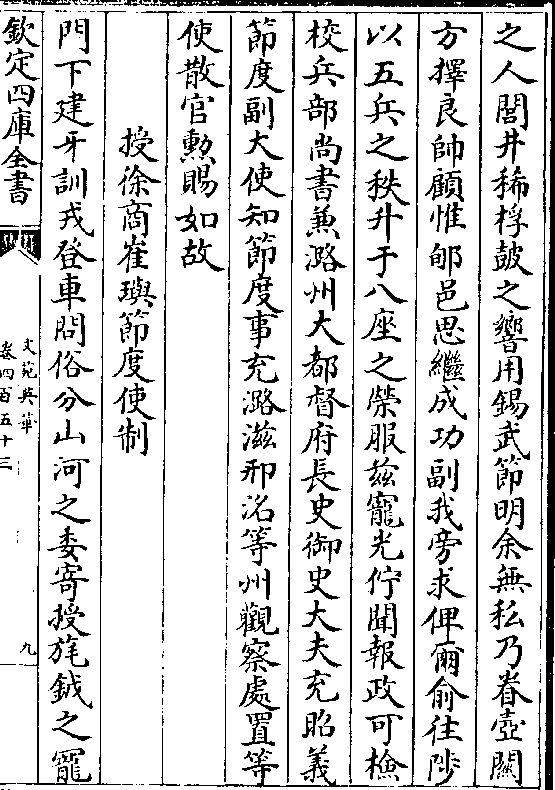 之人閭井稀桴皷之響用錫武節明余無私乃眷壺關
方擇良帥顧惟郇邑思繼成功副我旁求俾爾俞往陟
以五兵之秩升于八座之榮服兹寵光佇聞報政可檢
校兵部尚書兼潞州大都督府長史御史大夫充昭義
節度副大使知節度事充潞滋邢洺等州觀察處置等
使散官勲賜如故
授徐商崔璵節度使制
門下建牙訓戎登車問俗分山河之委寄授旄鉞之寵
欽定四庫全書
文苑英華
卷四百五十三
九